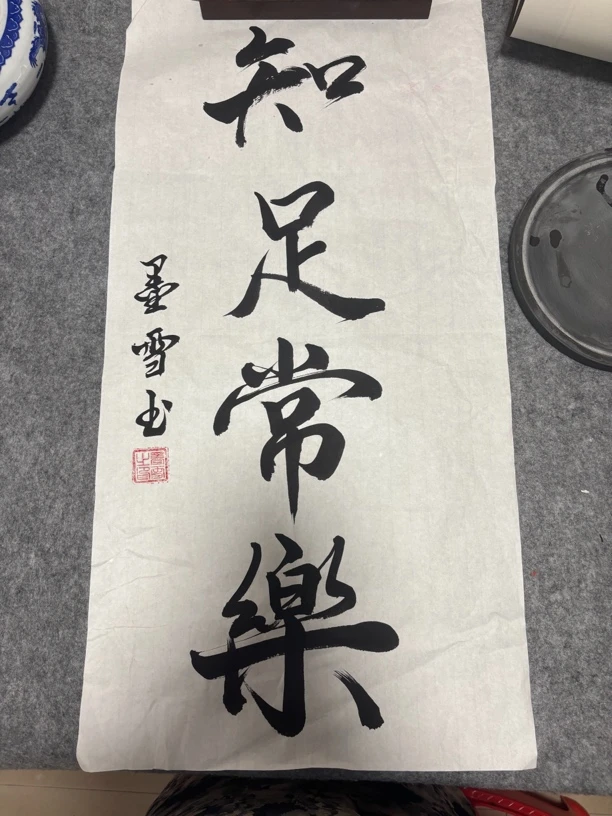 知足常樂
墨雪书